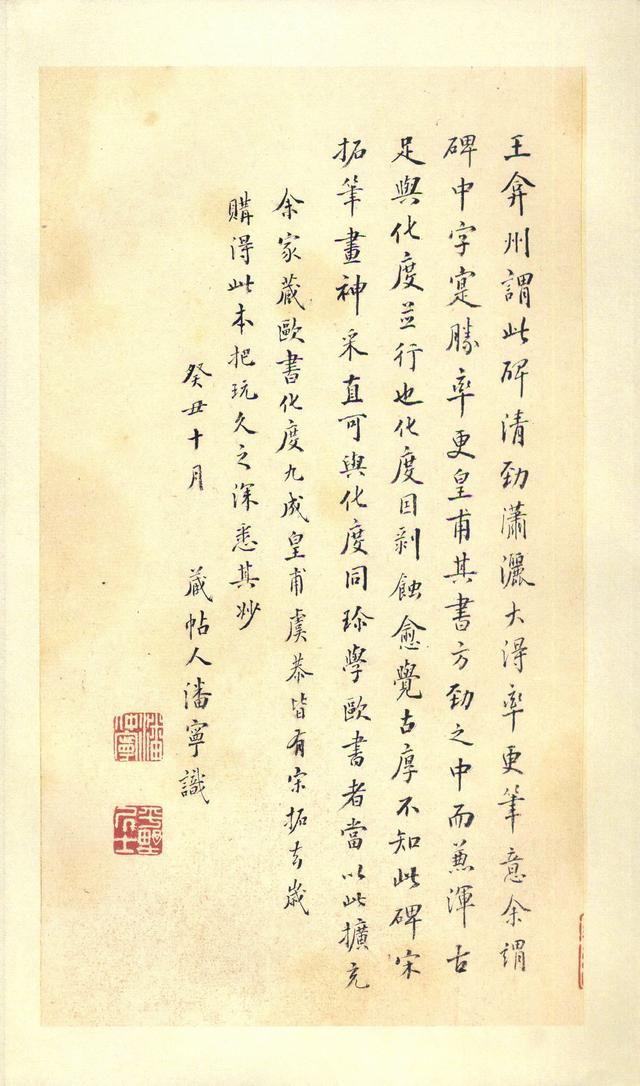 王弇州謂此碑清勁瀟灑大得率更筆意余謂
碑中字寔勝率更皇甫其書方勁之中而兼渾古
足與化度並行也化度因剥蝕愈覺古厚不知此碑宋
拓筆畫神采直可與化度同珍學歐書者當以此擴充
余家藏歐書化度九成皇甫虞恭皆有宋拓去歲
購得此本把玩久之深悉其妙
癸丑十月 藏帖人潘寧識
潘仲寧